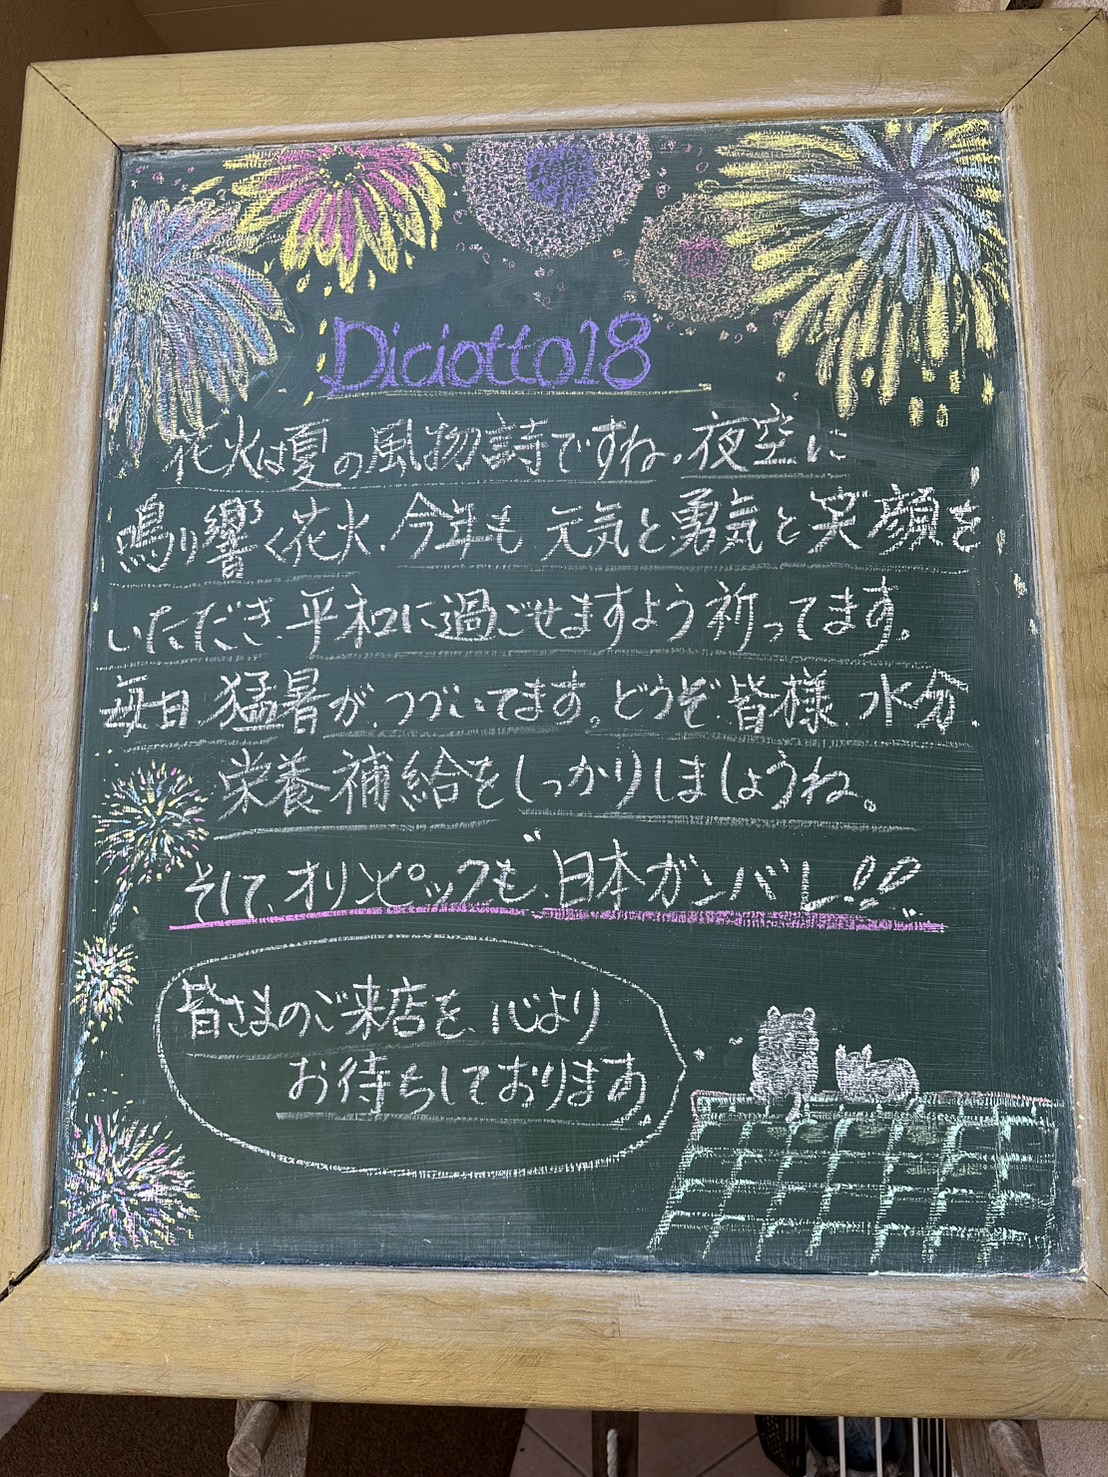 Diciotto18
花火は夏の風物詩ですね。夜空に
鳴り響く花火、今年も 元気と勇気と笑顔を
いただき、平和に過ごせますよう祈ってます。
毎日 猛暑が、つづいてます。どうぞ皆様 水分、
栄養補給をしっかりしましょうね。
そして、オリンピックも、"日本ガンバレ!!"
皆さまのご来店を、心より
お待ちしております。